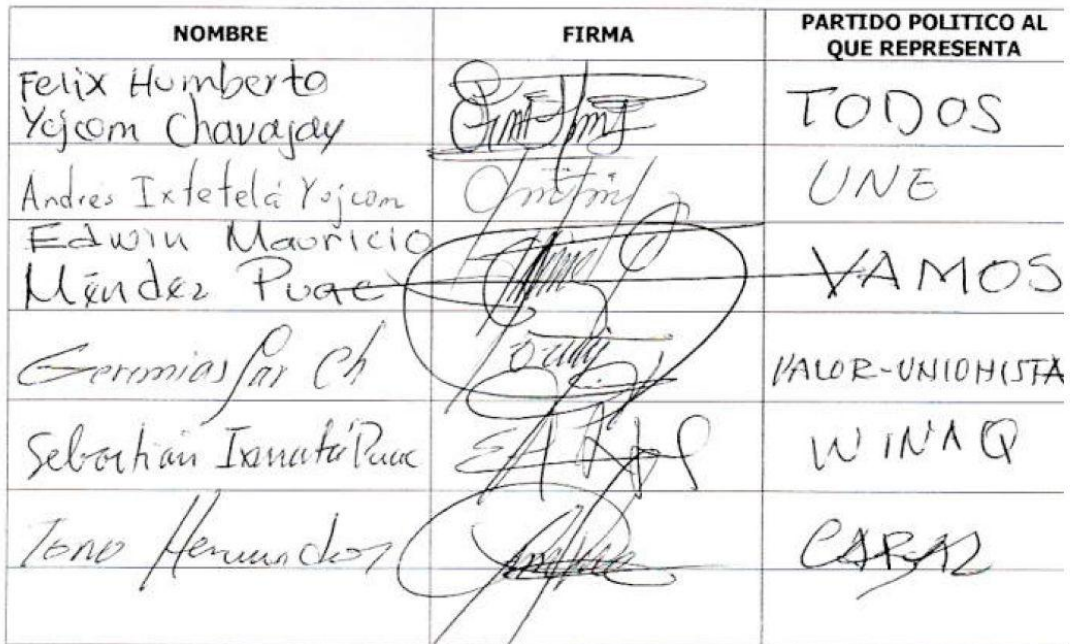 NOMBRE FIRMA PARTIDO POLITICO AL
QUE REPRESENTA
Felix Humberto
Yojcom Chavajay TODOS
Andrés Ixtetelá Yojcom UNE
Edwin Mauricio
Méndez Puac VAMOS
Geremias Par Ch VALOR-UNIONISTA
Sebastián Ixmatá Puac WINAQ
Tono Hernandez CABAL